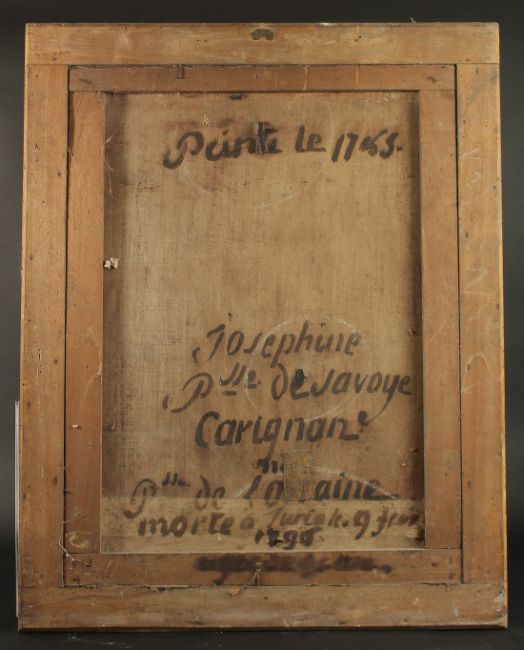 Peinte le 1765.
Josephine
Psse de Savoye
Carignane
Psse de Lorraine
morte a Turin le 9 fevr